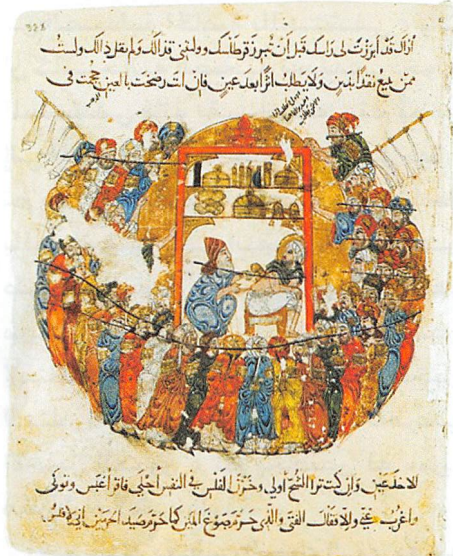 أراك قد أبرزت لي راسك قبل أن تبرز قرطاسك ووليتني قذالك ولم تقل ذا لك ولست
ممن يبيع نقدا بدين ولا يطلب أثرا بعد عين فإن أنت رضخت بالعين حجمت في
الاخدعين وإن كنت ترا الشح أولى وخزن الفلس في النفس أحلى فاقرأ عبس وتولى
واغرب عني وإلا فقال الفتى والذي حرم صوغ المين كما حرم صيد الحرمين إني لافلس